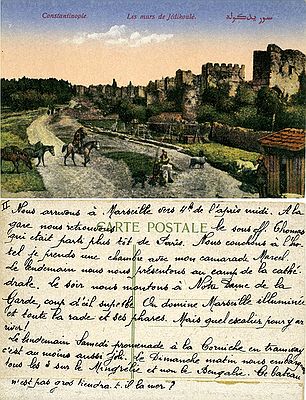 Constantinople. Les murs de Jédikoulé. سور یدی‌کوله
II Nous arrivons à Marseille vers 4h de l'après midi. A la
gare nous retrouvons le sous off. Thomas
CARTE POSTALE
qui était parti plus tôt de Paris. Nous couchons à l'hô-
tel je prends une chambre avec mon camarade Marcel.
Le lendemain nous nous présentons au camp de la cathé-
drale. Le soir nous montons à Notre Dame de la
Garde, coup d'œil superbe. On domine Marseille illuminée
et toute la rade et ses phares. Mais quel escalier pour y ar-
river!
Le lendemain Samedi promenade à la Corniche en tramway
c'est au moins aussi joli. Le Dimanche matin nous embar-
tous les 3 sur le Mingrélie et non le Bengalie. Ce bateau
n'est pas gros tiendra-t-il la mer?